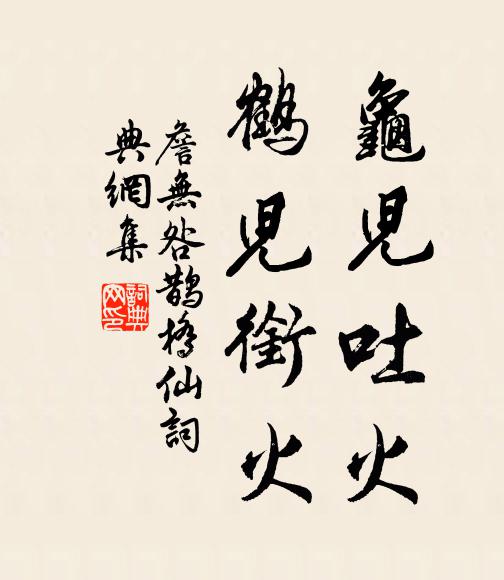 龜兒吐火
鶴兒銜火
詹無咎鵲橋仙詞
典網集
詞典網印